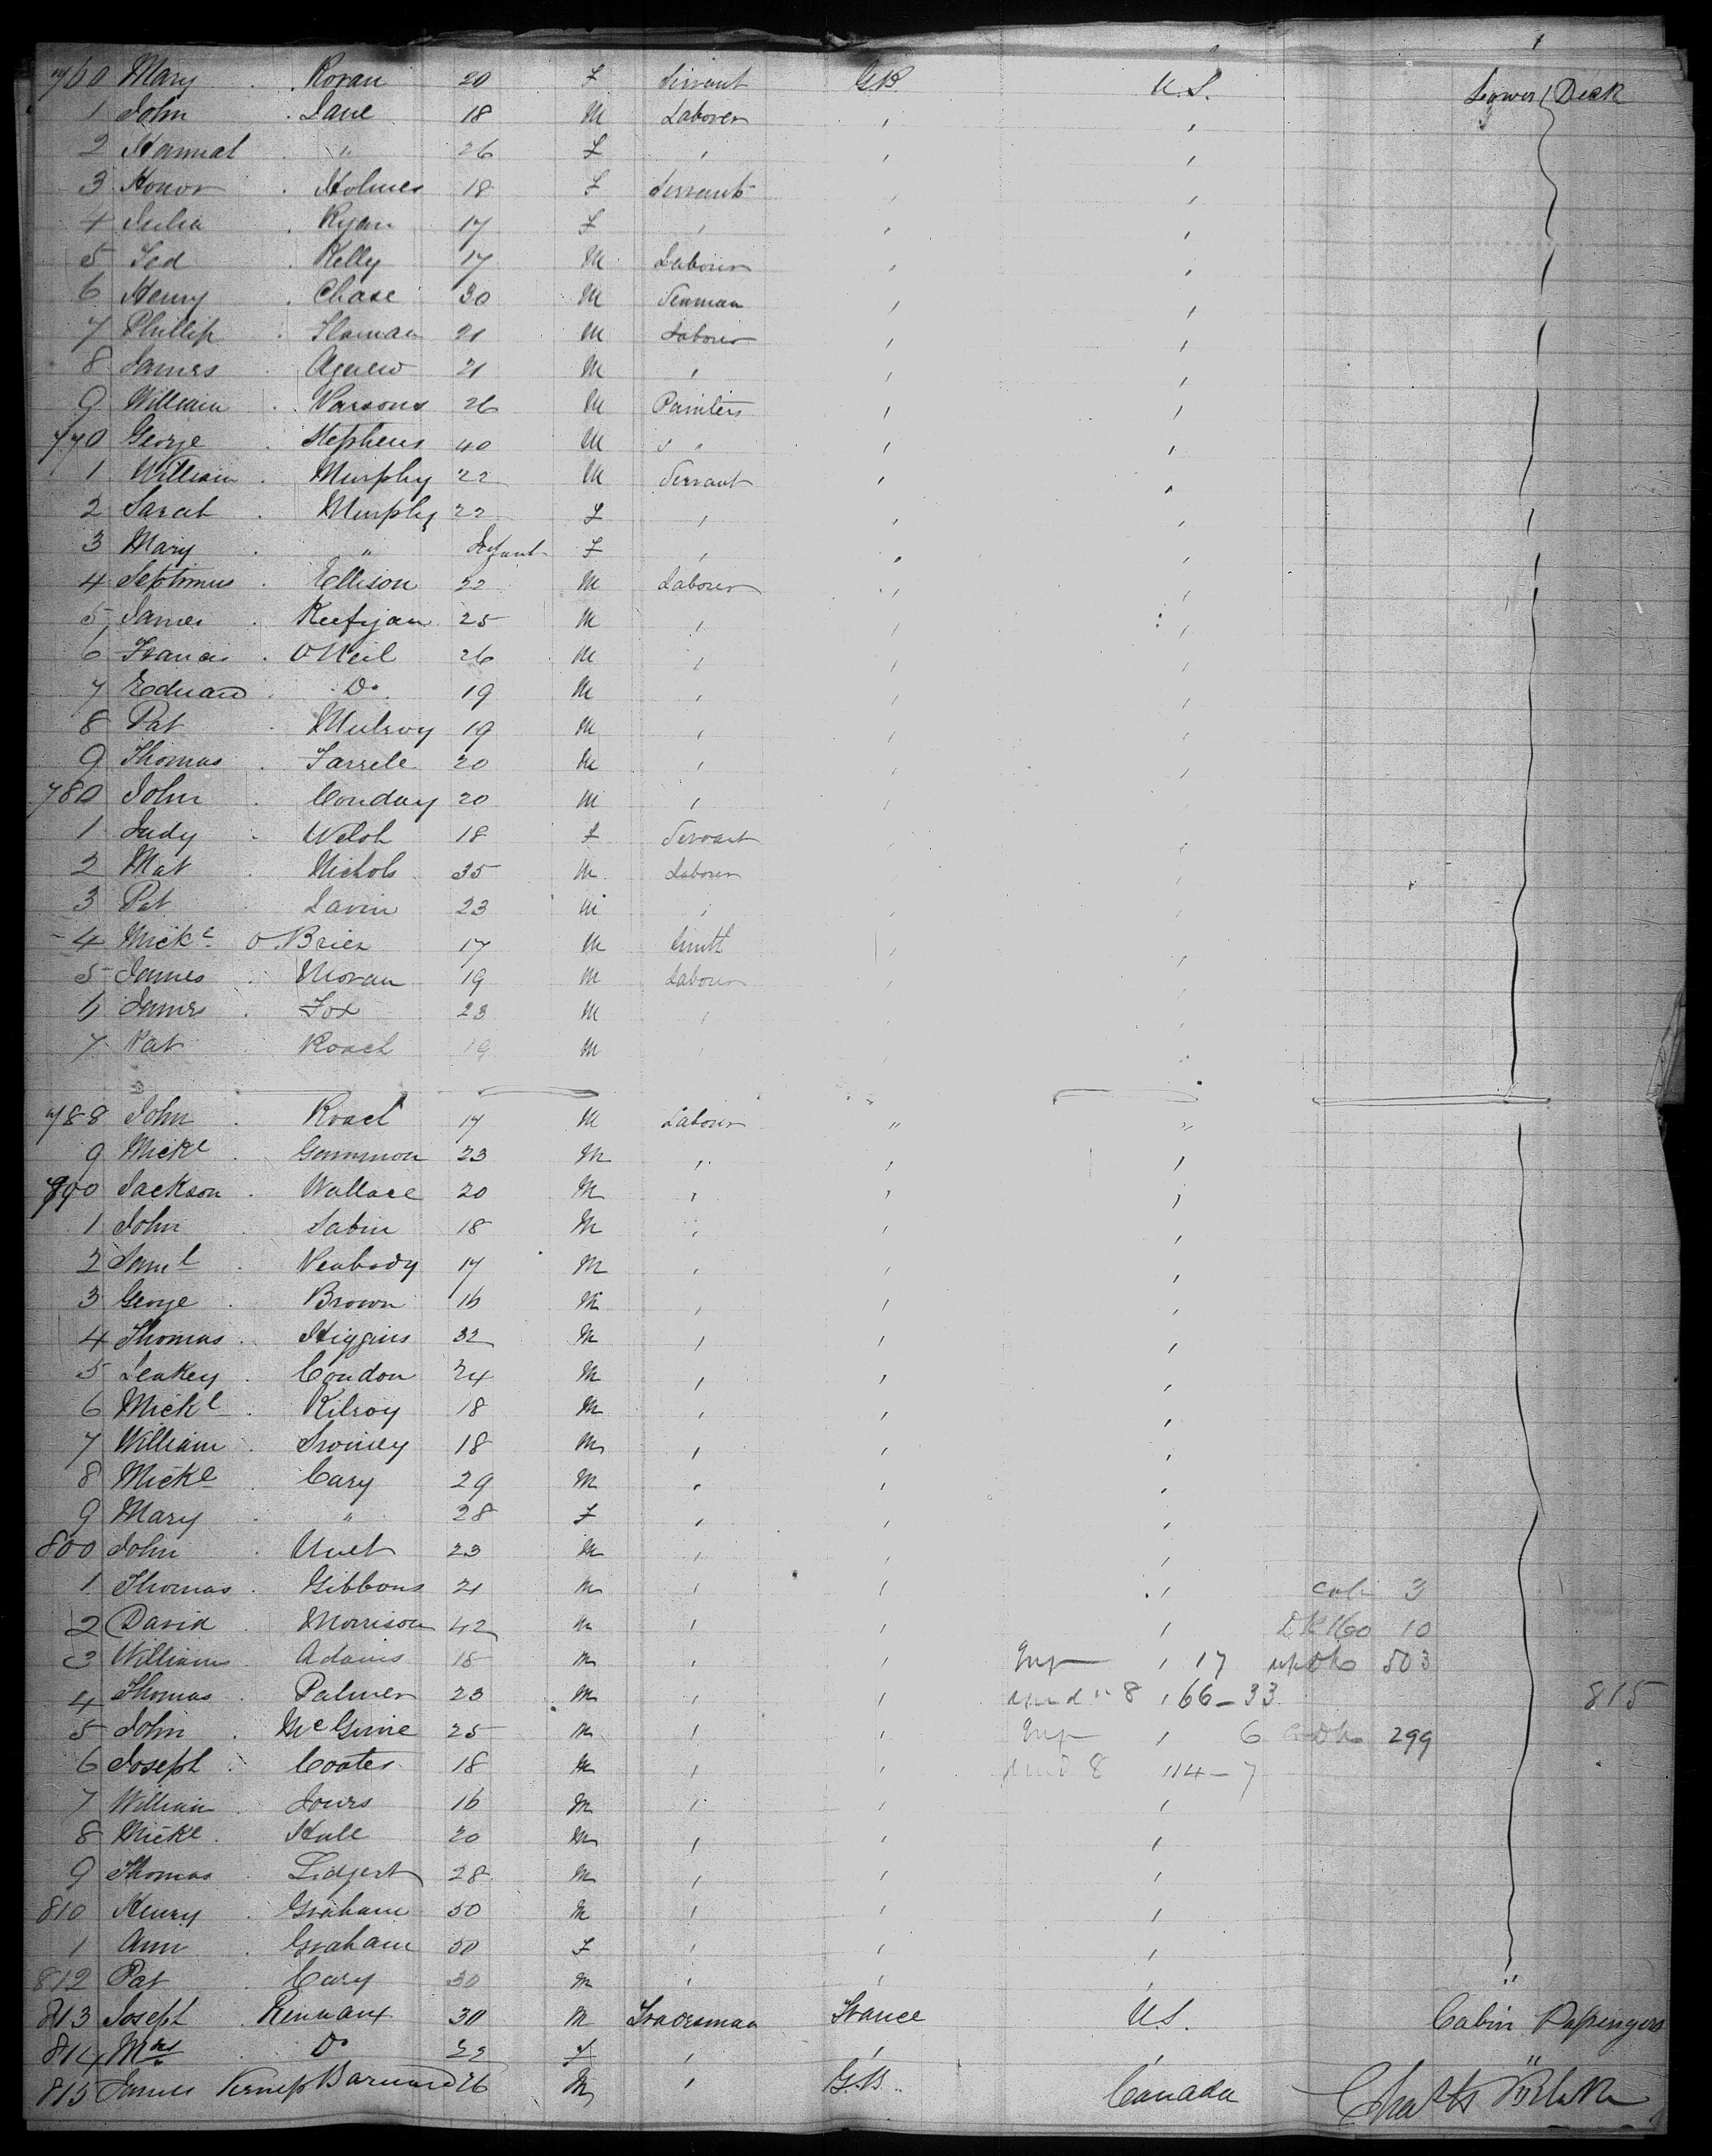 760 Mary Roran 20 F Servant G.B. U.S. Lower Deck
1 John Lane 18 M Laborer " "
2 Hannah " 26 F " " "
3 Honor Holmes 18 F Servant " "
4 Julia Ryan 17 F " " "
5 Ted Kelly 17 M Laborer " "
6 Henry Chase 30 M Seaman " "
7 Phillip 21 M Laborer " "
8 James Agnew 21 M " " "
9 William Parsons 26 M Painters " "
770 George Stephens 40 M " " " "
1 William Murphy 22 M Servant " "
2 Sarah Murphy 22 F " " "
3 Mary " Infant F " " "
4 Septimus Ellison 22 M Laborer " "
5 James 25 M " " "
6 Francis O'Neil 26 M " " "
7 Edward Do. 19 M " " "
8 Pat Mulroy 19 M " " "
9 Thomas Farrele 20 M " " "
780 John Conday 20 M " " "
1 Judy Welsh 18 F Servant " "
2 Mat Nichols 35 M Laborer " "
3 Pat Lavin 23 M " " "
4 Mickl O Brien 17 M Smith " "
5 James Moran 19 M Labour " "
6 James Fox 23 M " " "
7 Pat Roach 19 M " " "
788 John Roach 17 M Laborer " "
9 Mickl Gammon 23 M " " "
790 Jackson Wallace 20 M " " "
1 John Sabin 18 M " " "
2 Saml Peabody 17 M " " "
3 George Brown 16 M " " "
4 Thomas Higgins 32 M " " "
5 Leakey Condon 24 M " " "
6 Mickl Kilroy 18 M " " "
7 William Swiney 18 M " " "
8 Mickl Cary 29 M " " "
9 Mary " 28 F " " "
800 John 23 M " " "
1 Thomas Gibbons 21 M " " " cab 3
2 David Morrison 42 M " " " 10
3 William Adams 18 M " " " 17 upDk 503
4 Thomas Palmer 23 M " " und" 8 " 66-33 815
5 John McGinie 25 M " " " 6 Dk 299
6 Joseph Coates 18 M " " und 8 114-7
7 William Jones 16 M " " "
8 Mickl Hull 20 M " " "
9 Thomas Lidgert 28 M " " "
810 Henry Graham 50 M " " "
1 Ann Graham 50 F " " "
812 Pat Cary 30 M " " " "
813 Joseph Rennaux 30 M Tradesman France U.S. Cabin Passengers
814 Mrs Do 22 F " " " "
815 James Barnard 26 M " G.B. Canada